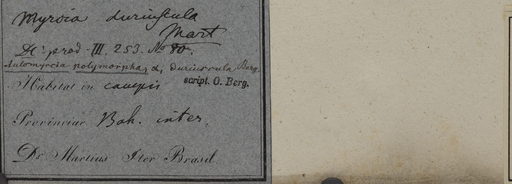 Myrcia duriuscula
Mart
DC prod. III. 253. No 80.
Automyrcia polymorpha, α, duriuscula, Berg.
Habitat in campis script. O. Berg.
Provinciae Bah. inter.
Dr. Martius Iter Brasil